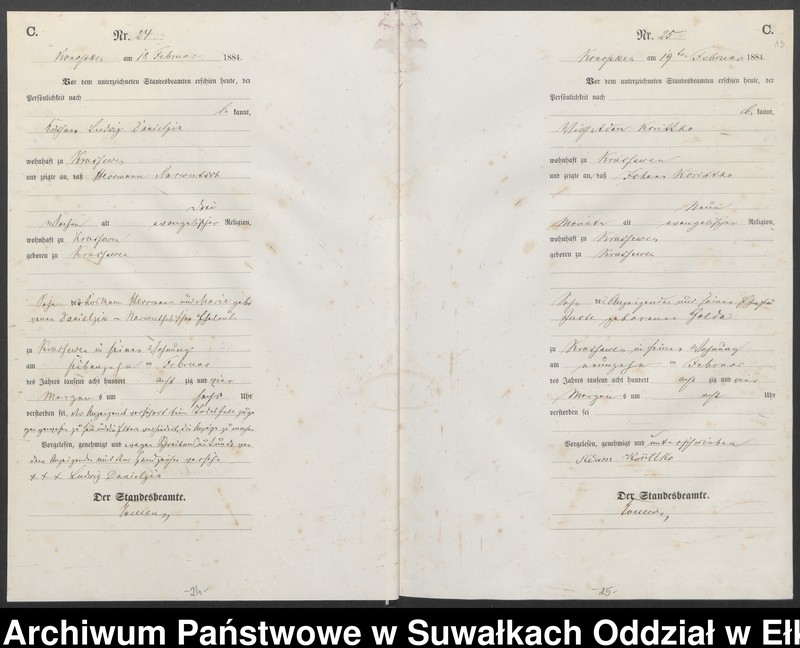 C.
Nr. 24
Konopken am 18 Februar 1884.
Vor dem unterzeichneten Standesbeamten erschien heute, der
Persönlichkeit nach
be kannt,
Ludwig Danielzig
wohnhaft zu Krassewen
und zeigte an, daß Herrmann
Drei
Wochen alt evangelischer Religion,
wohnhaft zu Krassewen
geboren zu Krassewen
Sohn des Herrmann und Marie gebo
renen Danielzig Eheleute
zu Krassewen in seiner Wohnung
am siebenzehn ten Februar
des Jahres tausend acht hundert acht zig und vier
Morgens um sechs Uhr
verstorben sei, der Anzeigende
Vorgelesen, genehmigt und wegen Schreibensunkunde von
dem Anzeigenden mit dem Handzeichen versehen
+++ Ludwig Danielzig
Der Standesbeamte.
-24-
C.
Nr. 25
Konopken am 19ten Februar 1884.
Vor dem unterzeichneten Standesbeamten erschien heute, der
Persönlichkeit nach
be kannt,
Adam Korittko
wohnhaft zu Krassewen
und zeigte an, daß Johann Korittko
Neun
Monate alt evangelischer Religion,
wohnhaft zu Krassewen
geboren zu Krassewen
Sohn des Anzeigenden und seiner Ehefrau
geborenen Golda
zu Krassewen in seiner Wohnung
am neunzehn ten Februar
des Jahres tausend acht hundert acht zig und vier
Morgens um acht Uhr
verstorben sei
Vorgelesen, genehmigt und unterschrieben
Adam Korittko
Der Standesbeamte.
-25-
Archiwum Państwowe w Suwałkach Oddział w Ełk